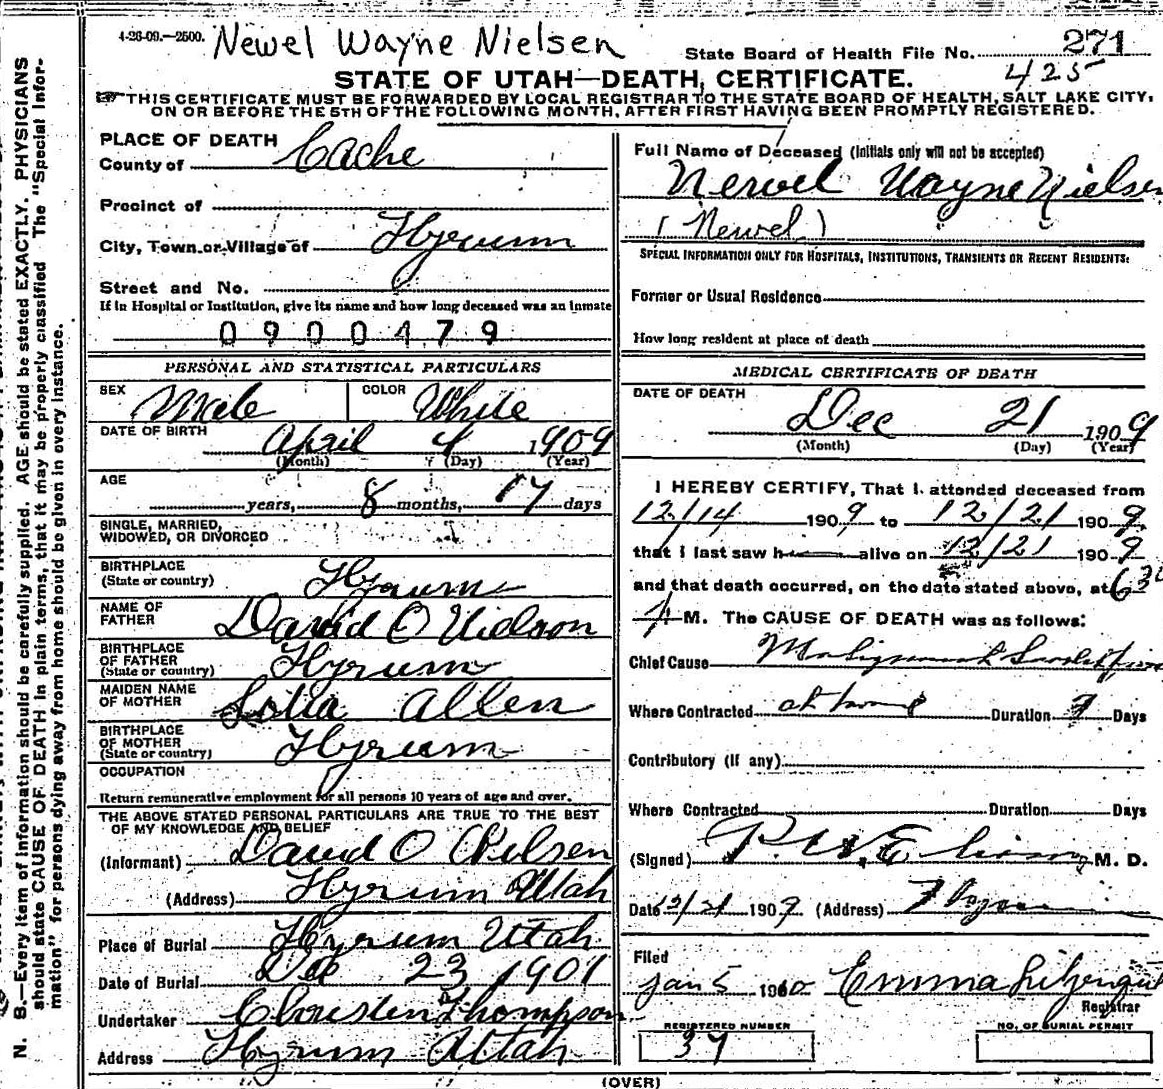 4-26-09.—2500. Newel Wayne Nielsen
State Board of Health File No. 271
425
STATE OF UTAH—DEATH CERTIFICATE.
THIS CERTIFICATE MUST BE FORWARDED BY LOCAL REGISTRAR TO THE STATE BOARD OF HEALTH, SALT LAKE CITY,
ON OR BEFORE THE 5TH OF THE FOLLOWING MONTH, AFTER FIRST HAVING BEEN PROMPTLY REGISTERED.
PLACE OF DEATH
County of Cache
Precinct of
City, Town or Village of Hyrum
Street and No.
If in Hospital or Institution, give its name and how long deceased was an inmate
0900479
PERSONAL AND STATISTICAL PARTICULARS
SEX Male COLOR White
DATE OF BIRTH April 4 1909
(Month) (Day) (Year)
AGE
years, 8 months, 17 days
SINGLE, MARRIED,
WIDOWED, OR DIVORCED
BIRTHPLACE
(State or country) Hyrum
NAME OF
FATHER David O Nielson
BIRTHPLACE
OF FATHER
(State or country) Hyrum
MAIDEN NAME
OF MOTHER Allen
BIRTHPLACE
OF MOTHER
(State or country) Hyrum
OCCUPATION
Return remunerative employment for all persons 10 years of age and over.
THE ABOVE STATED PERSONAL PARTICULARS ARE TRUE TO THE BEST
OF MY KNOWLEDGE AND BELIEF
(Informant) David O Nielsen
(Address) Hyrum Utah
Place of Burial Hyrum Utah
Date of Burial Dec 23 1909
Undertaker Thompson
Address Hyrum Utah
Full Name of Deceased (Initials only will not be accepted)
Newel Wayne Nielsen
(Newel)
SPECIAL INFORMATION ONLY FOR HOSPITALS, INSTITUTIONS, TRANSIENTS OR RECENT RESIDENTS:
Former or Usual Residence
How long resident at place of death
MEDICAL CERTIFICATE OF DEATH
DATE OF DEATH
Dec 21 1909
(Month) (Day) (Year)
I HEREBY CERTIFY, That I attended deceased from
12/14 1909 to 12/21 1909
that I last saw h alive on 12/21 1909
and that death occurred, on the date stated above, at 630
M. The CAUSE OF DEATH was as follows:
Chief Cause Malignant
Where Contracted at home Duration 7 Days
Contributory (if any)
Where Contracted Duration Days
(Signed) M. D.
Date 12/21 1909 (Address)
Filed
Jan 5 1910 Emma
Registrar
REGISTERED NUMBER
37
NO. OF BURIAL PERMIT
(OVER)
N. B.—Every item of information should be carefully supplied. AGE should be stated EXACTLY. PHYSICIANS
should state CAUSE OF DEATH in plain terms, that it may be properly classified The "Special Infor-
mation" for persons dying away from home should be given in every instance.